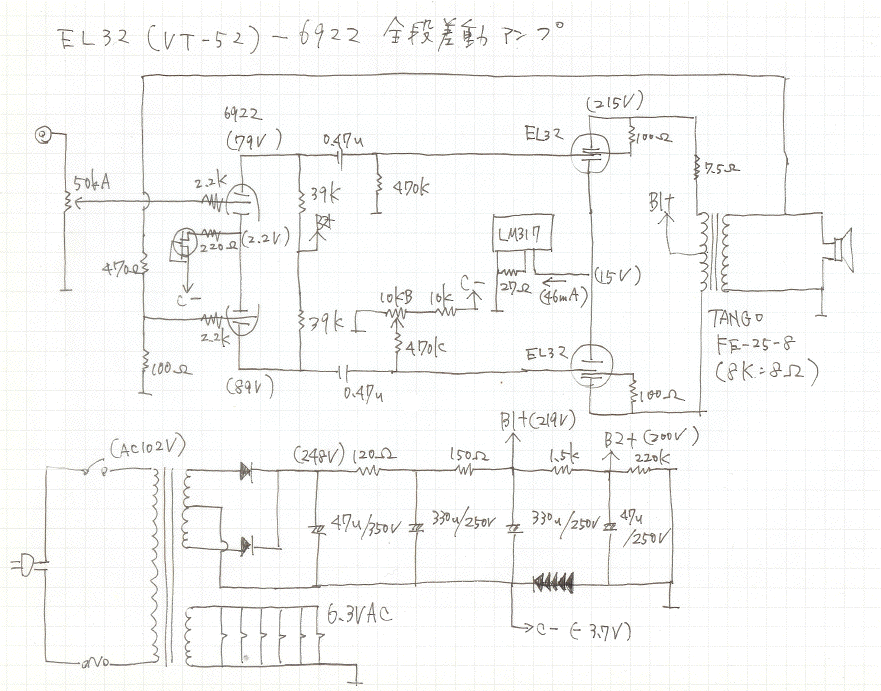 EL32 (VT-52) - 6922 全段差動アンプ
6922
(79V)
0.47u
EL32
(215V)
100Ω
50kA
2.2k
39K
470k
7.5Ω
B1+
B2+
220Ω
(2.2V)
LM317
470Ω
C-
27Ω
(46mA)
(15V)
10kB
10k
C-
2.2k
39k
470k
EL32
TANGO
FE-25-8
(8K:8Ω)
100Ω
(89V)
0.47u
100Ω
B1+(219V)
(AC102V)
(248V)
120Ω
150Ω
1.5k
B2+(200V)
220k
47u/350V
330u/250V
330u/250V
47u
/250V
6.3VAC
C- (-3.7V)